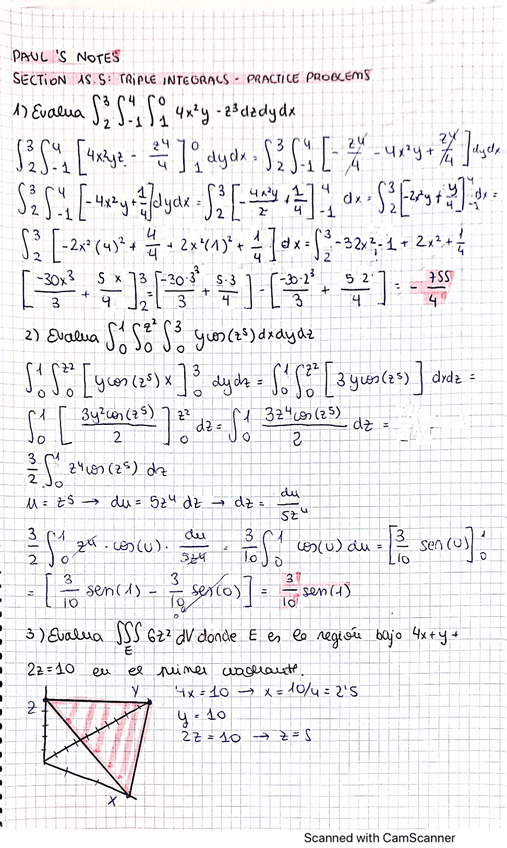 PAUL'S NOTES
SECTION 15.5: TRIPLE INTEGRALS - PRACTICE PROBLEMS
1) Evalua ∫₂³ ∫₋₁⁴ ∫₁⁰ 4x²y - z³ dz dy dx
∫₂³ ∫₋₁⁴ [4x²yz - z⁴/4]₁⁰ dy dx = ∫₂³ ∫₋₁⁴ [- z⁴/4 - 4x²y + z⁴/4] dy dx
∫₂³ ∫₋₁⁴ [-4x²y + 1/4] dy dx = ∫₂³ [- 4x²y/2 + 1/4]₋₁⁴ dx = ∫₂³ [-2x²y + y/4]₋₁⁴ dx =
∫₂³ [-2x²(4)² + 4/4 + 2x²(1)² + 1/4] dx = ∫₂³ -32x² - 1 + 2x² + 1/4
[-30x³/3 + 5x/4]₂³ = [-30·3³/3 + 5·3/4] - [-30·2³/3 + 5·2/4] = - 755/4
2) Evalua ∫₀¹ ∫₀^z² ∫₀³ y cos(z⁵) dx dy dz
∫₀¹ ∫₀^z² [y cos(z⁵) x]₀³ dy dz = ∫₀¹ ∫₀^z² [3y cos(z⁵)] dy dz =
∫₀¹ [3y² cos(z⁵)/2]₀^z² dz = ∫₀¹ 3z⁴ cos(z⁵)/2 dz =
3/2 ∫₀¹ z⁴ cos(z⁵) dz
u = z⁵ → du = 5z⁴ dz → dz = du/5z⁴
3/2 ∫₀¹ z⁴ · cos(u) · du/5z⁴ = 3/10 ∫₀¹ cos(u) du = [3/10 sen(u)]₀¹
= [3/10 sen(1) - 3/10 sen(0)] = 3/10 sen(1)
3) Evalua ∭_E 6z² dV donde E es la región bajo 4x + y +
2z = 10 en el primer cuadrante.
4x = 10 → x = 10/4 = 2'5
y = 10
2z = 10 → z = 5
z
y
x
Scanned with CamScanner